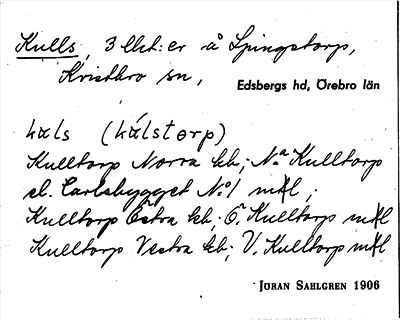 Kulls, 3 lht:er å Ljungstorp,
Kvistbro sn,
Edsbergs hd, Örebro län
kals (kálstorp)
Kulltorp Norra lh; N:a Kulltorp
el. Carlsbygget No 1 mtl;
Kulltorp Östra lh; Ö. Kulltorp mtl
Kulltorp Vestra lh; V. Kulltorp mtl
JÖRAN SAHLGREN 1906